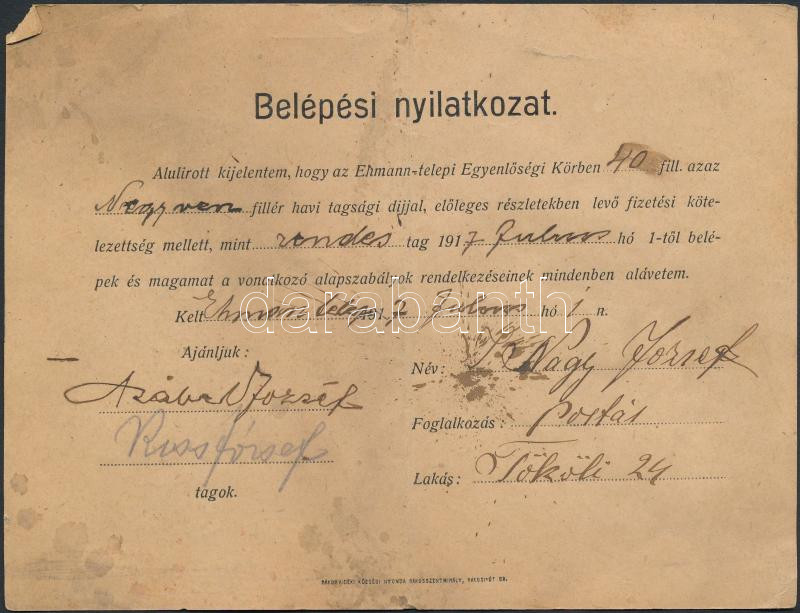 Belépési nyilatkozat.
Alulirott kijelentem, hogy az Ehmann-telepi Egyenlőségi Körben 40 fill. azaz
Negyven fillér havi tagsági dijjal, előleges részletekben levő fizetési köte-
lezettség mellett, mint rendes tag 1917 Julius hó 1-től belé-
pek és magamat a vonatkozó alapszabályok rendelkezéseinek mindenben alávetem.
Kelt Ehmann telep 1917 Julius hó 1 n.
Ajánljuk:
Név: Nagy József
József
Foglalkozás: Postás
József
Lakás: Tököli 24
tagok.
darabanth
RÁKOSVIDÉKI KÖZSÉGI NYOMDA RÁKOSSZENTMIHÁLY,